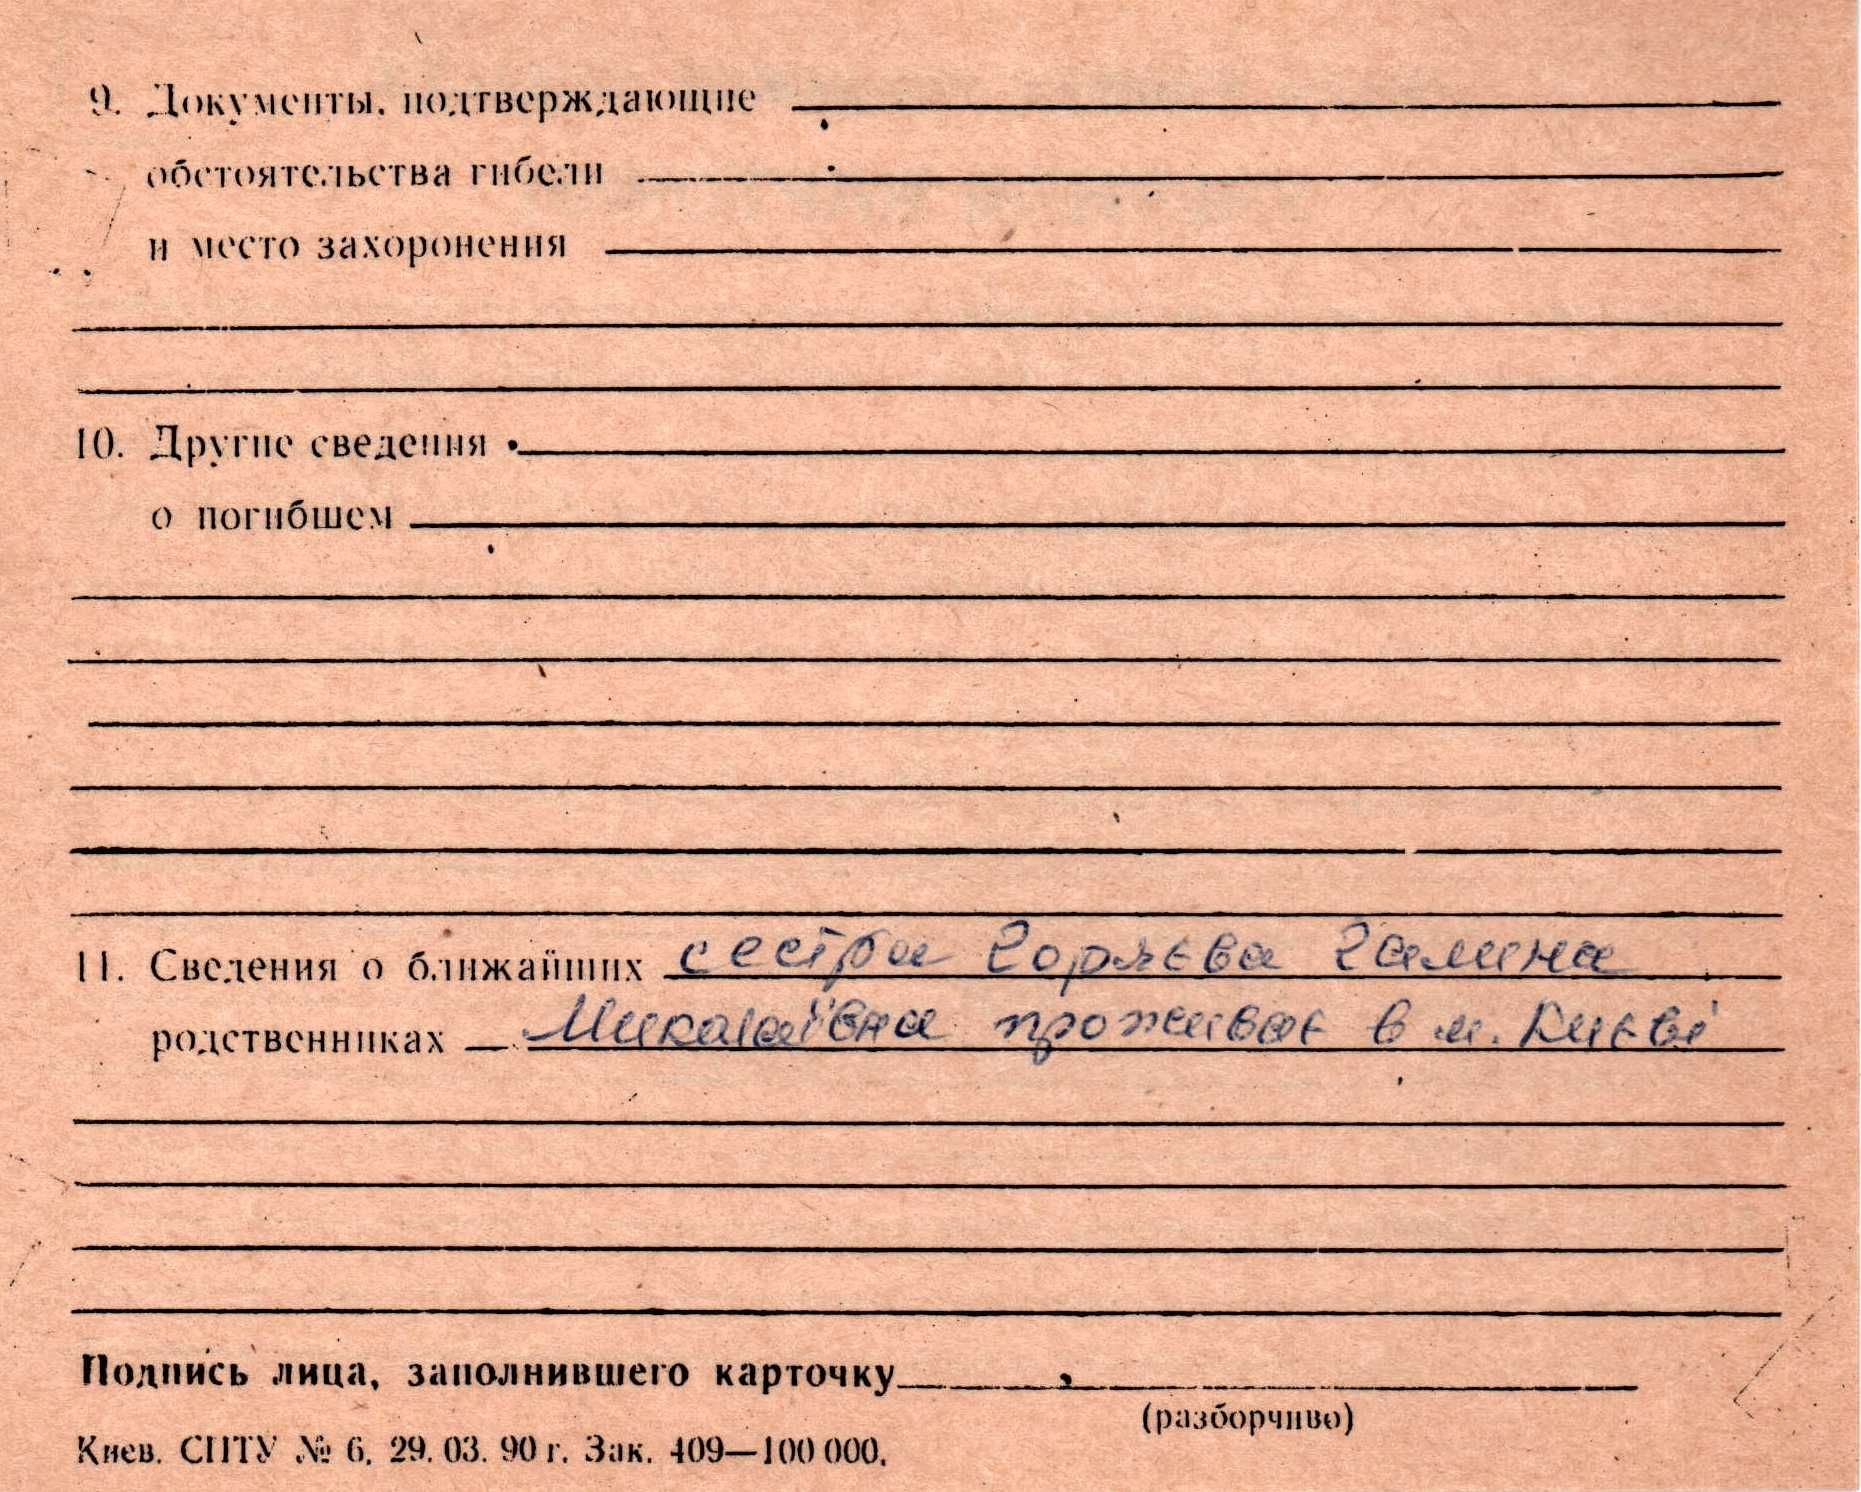 9. Документы, подтверждающие
обстоятельства гибели
и место захоронения
10. Другие сведения
о погибшем
11. Сведения о ближайших сестра Горяєва Галина
родственниках Миколаївна проживає в м. Києві
Подпись лица, заполнившего карточку
(разборчиво)
Киев. СПТУ № 6. 29. 03. 90 г. Зак. 409—100 000.